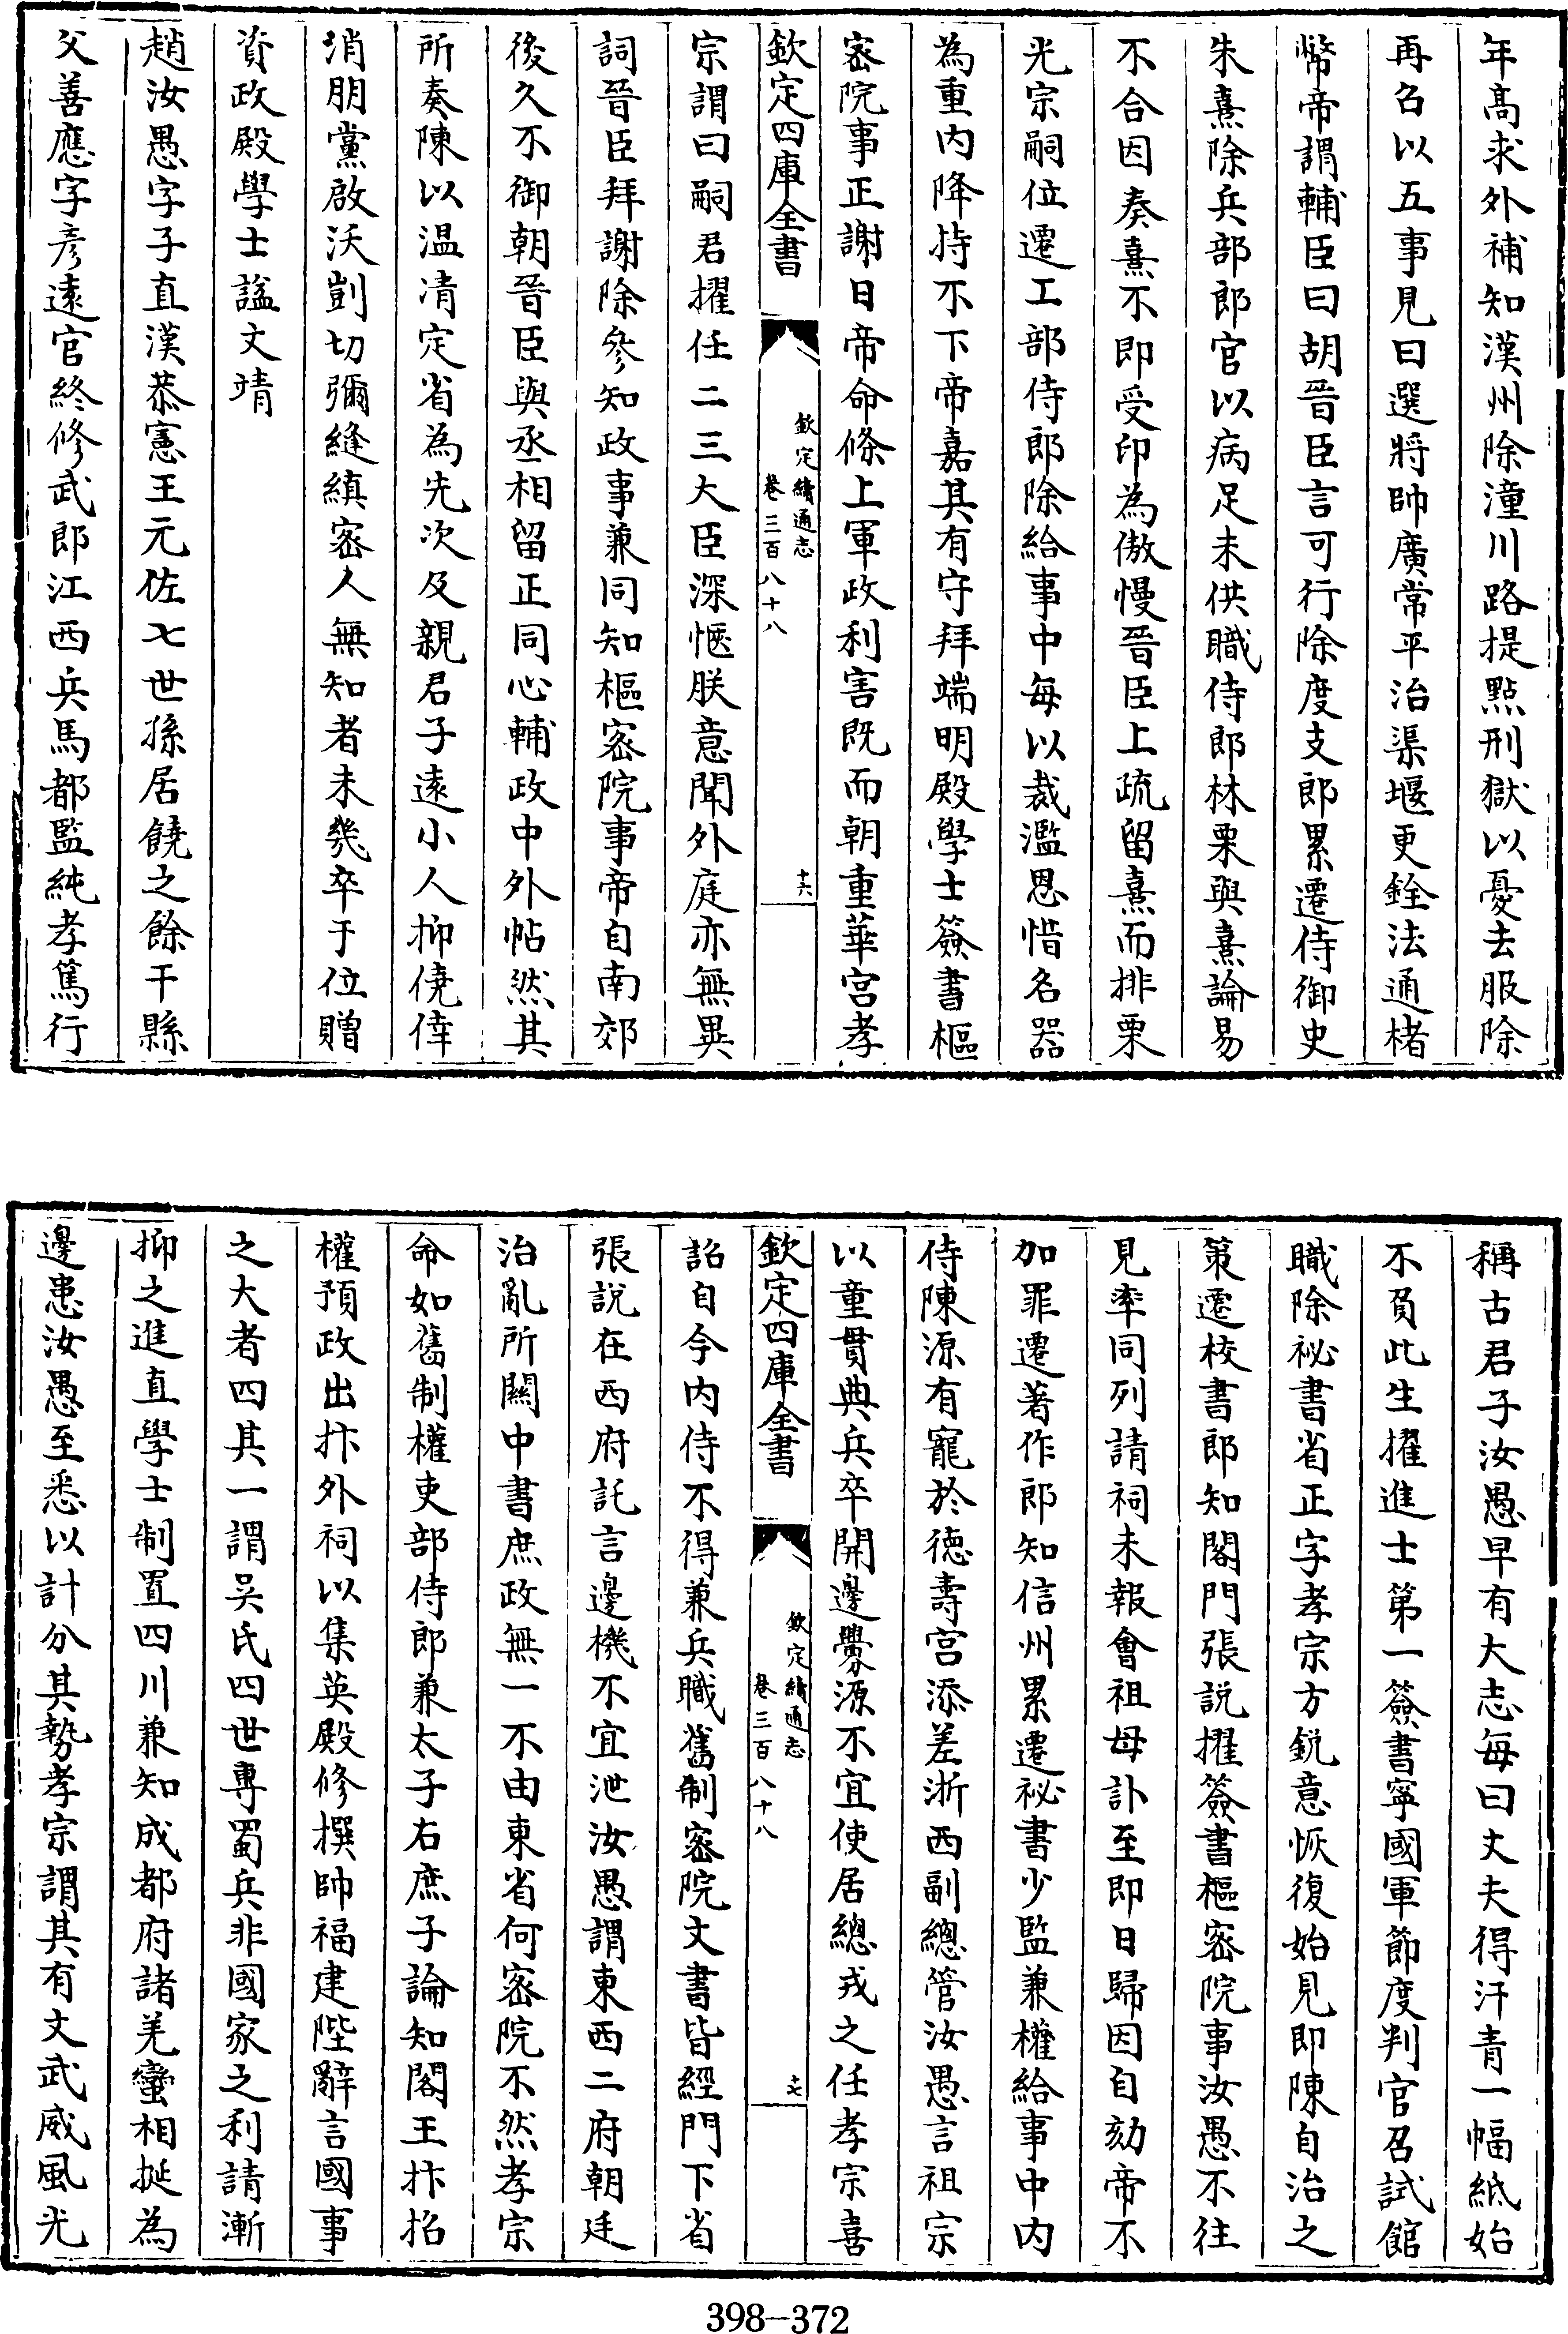 年高求外補知漢州除潼川路提㸃刑獄以憂去服除
再召以五事見曰選將帥廣常平治渠堰更銓法通楮
幣帝謂輔臣曰胡晉臣言可行除度支郎累遷侍御史
朱熹除兵部郎官以病足未供職侍郎林栗與熹論易
不合因奏熹不即受印為傲慢晉臣上疏留熹而排栗
光宗嗣位遷工部侍郎除給事中每以裁濫恩惜名器
為重内降持不下帝嘉其有守拜端明殿學士簽書樞
宻院事正謝日帝命條上軍政利害既而朝重華宫孝
欽定四庫全書
欽定續通志
卷三百八十八
十六
宗謂曰嗣君擢任二三大臣深愜朕意聞外庭亦無異
詞晉臣拜謝除參知政事兼同知樞宻院事帝自南郊
後久不御朝晉臣與丞相留正同心輔政中外帖然其
所奏陳以温凊定省為先次及親君子逺小人抑僥倖
消朋黨啟沃剴切彌縫縝宻人無知者未幾卒于位贈
資政殿學士諡文靖
趙汝愚字子直漢恭憲王元佐七世孫居饒之餘干縣
父善應字彦逺官終修武郎江西兵馬都監純孝篤行
稱古君子汝愚早有大志每曰丈夫得汗青一幅紙始
不負此生擢進士第一簽書寧國軍節度判官召試館
職除祕書省正字孝宗方鋭意恢復始見即陳自治之
策遷校書郎知閤門張説擢簽書樞宻院事汝愚不往
見率同列請祠未報會祖母訃至即日歸因自劾帝不
加罪遷著作郎知信州累遷祕書少監兼權給事中内
侍陳源有寵於徳壽宫添差浙西副總管汝愚言祖宗
以童貫典兵卒開邊釁源不宜使居總戎之任孝宗喜
欽定四庫全書
欽定續通志
卷三百八十八
十七
詔自今内侍不得兼兵職舊制宻院文書皆經門下省
張説在西府託言邊機不宜泄汝愚謂東西二府朝廷
治亂所闗中書庶政無一不由東省何宻院不然孝宗
命如舊制權吏部侍郎兼太子右庶子論知閤王抃招
權預政出抃外祠以集英殿修撰帥福建陛辭言國事
之大者四其一謂吳氏四世專蜀兵非國家之利請漸
抑之進直學士制置四川兼知成都府諸羌蠻相挻為
邊患汝愚至悉以計分其勢孝宗謂其有文武威風光
398-372